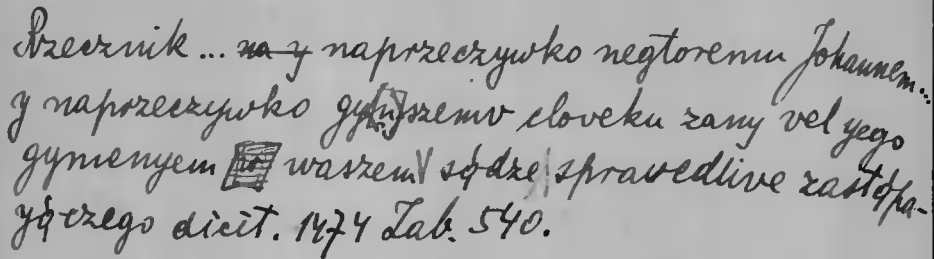 Rzecznik... na y naprzeczywko negtoremu Johannem...
y naprzeczywko gy[n]szemv cloveku zany vel yego
gymenyem waszem sǫdze sprawedlive zastǫpa-
yǫczego dicit. 1474 Zab. 540.